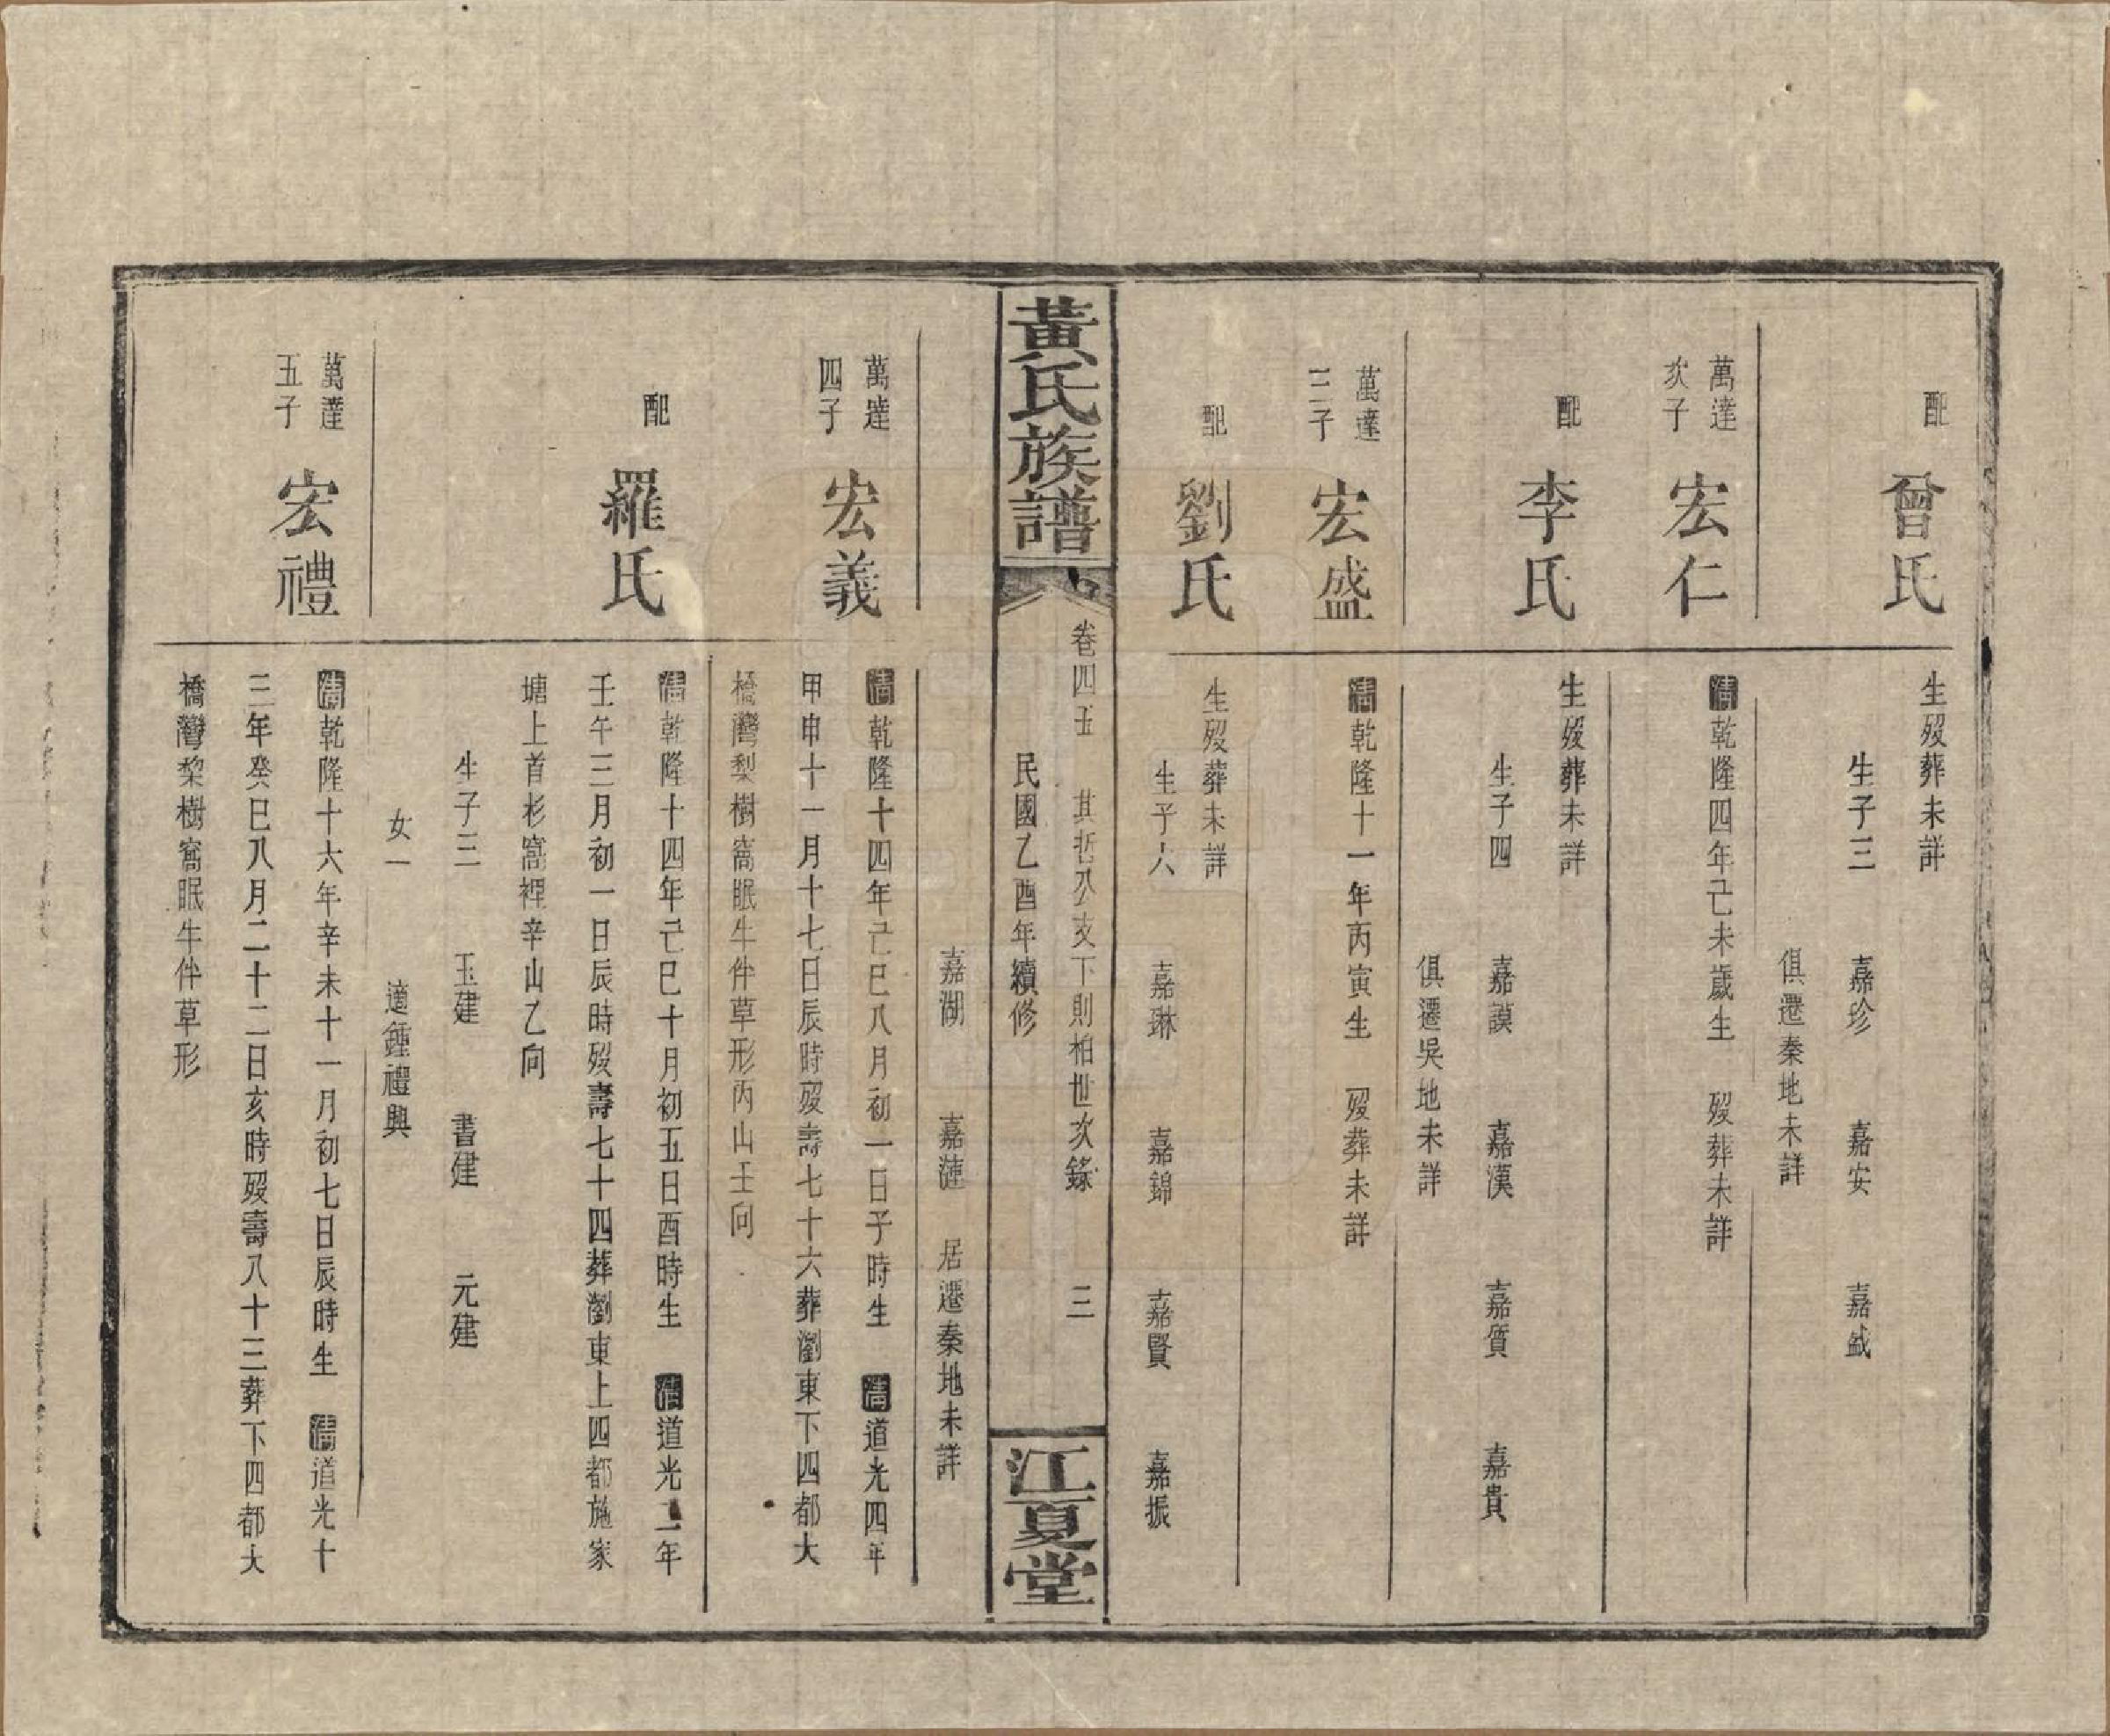 配
曾氏
生歿葬未詳
生子三 嘉珍 嘉安 嘉鉞
俱遷秦地未詳
萬達
次子
宏仁
清乾隆四年己未歲生 歿葬未詳
配
李氏
生歿葬未詳
生子四 嘉謨 嘉漢 嘉質 嘉貴
俱遷吳地未詳
萬達
三子
宏盛
清乾隆十一年丙寅生 歿葬未詳
配
劉氏
生歿葬未詳
生子六 嘉琳 嘉錦 嘉賢 嘉振
黃氏族譜
卷四五 其哲公支下則柏世次錄 三
民國乙酉年續修
江夏堂
嘉湖 嘉漣 居遷秦地未詳
萬達
四子
宏義
清乾隆十四年己巳八月初一日子時生 清道光四年
甲申十一月十七日辰時歿壽七十六葬瀏東下四都大
橋灣梨樹窩眠牛伴草形丙山壬向
配
羅氏
清乾隆十四年己巳十月初五日酉時生 清道光二年
壬午三月初一日辰時歿壽七十四葬瀏東上四都施家
塘上首杉窩裡辛山乙向
生子三 玉建 書建 元建
女一 適鍾禮興
萬達
五子
宏禮
清乾隆十六年辛未十一月初七日辰時生 清道光十
三年癸巳八月二十二日亥時歿壽八十三葬下四都大
橋灣棃樹窩眠牛伴草形